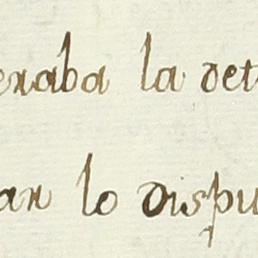 eraba la det
ar lo dispu